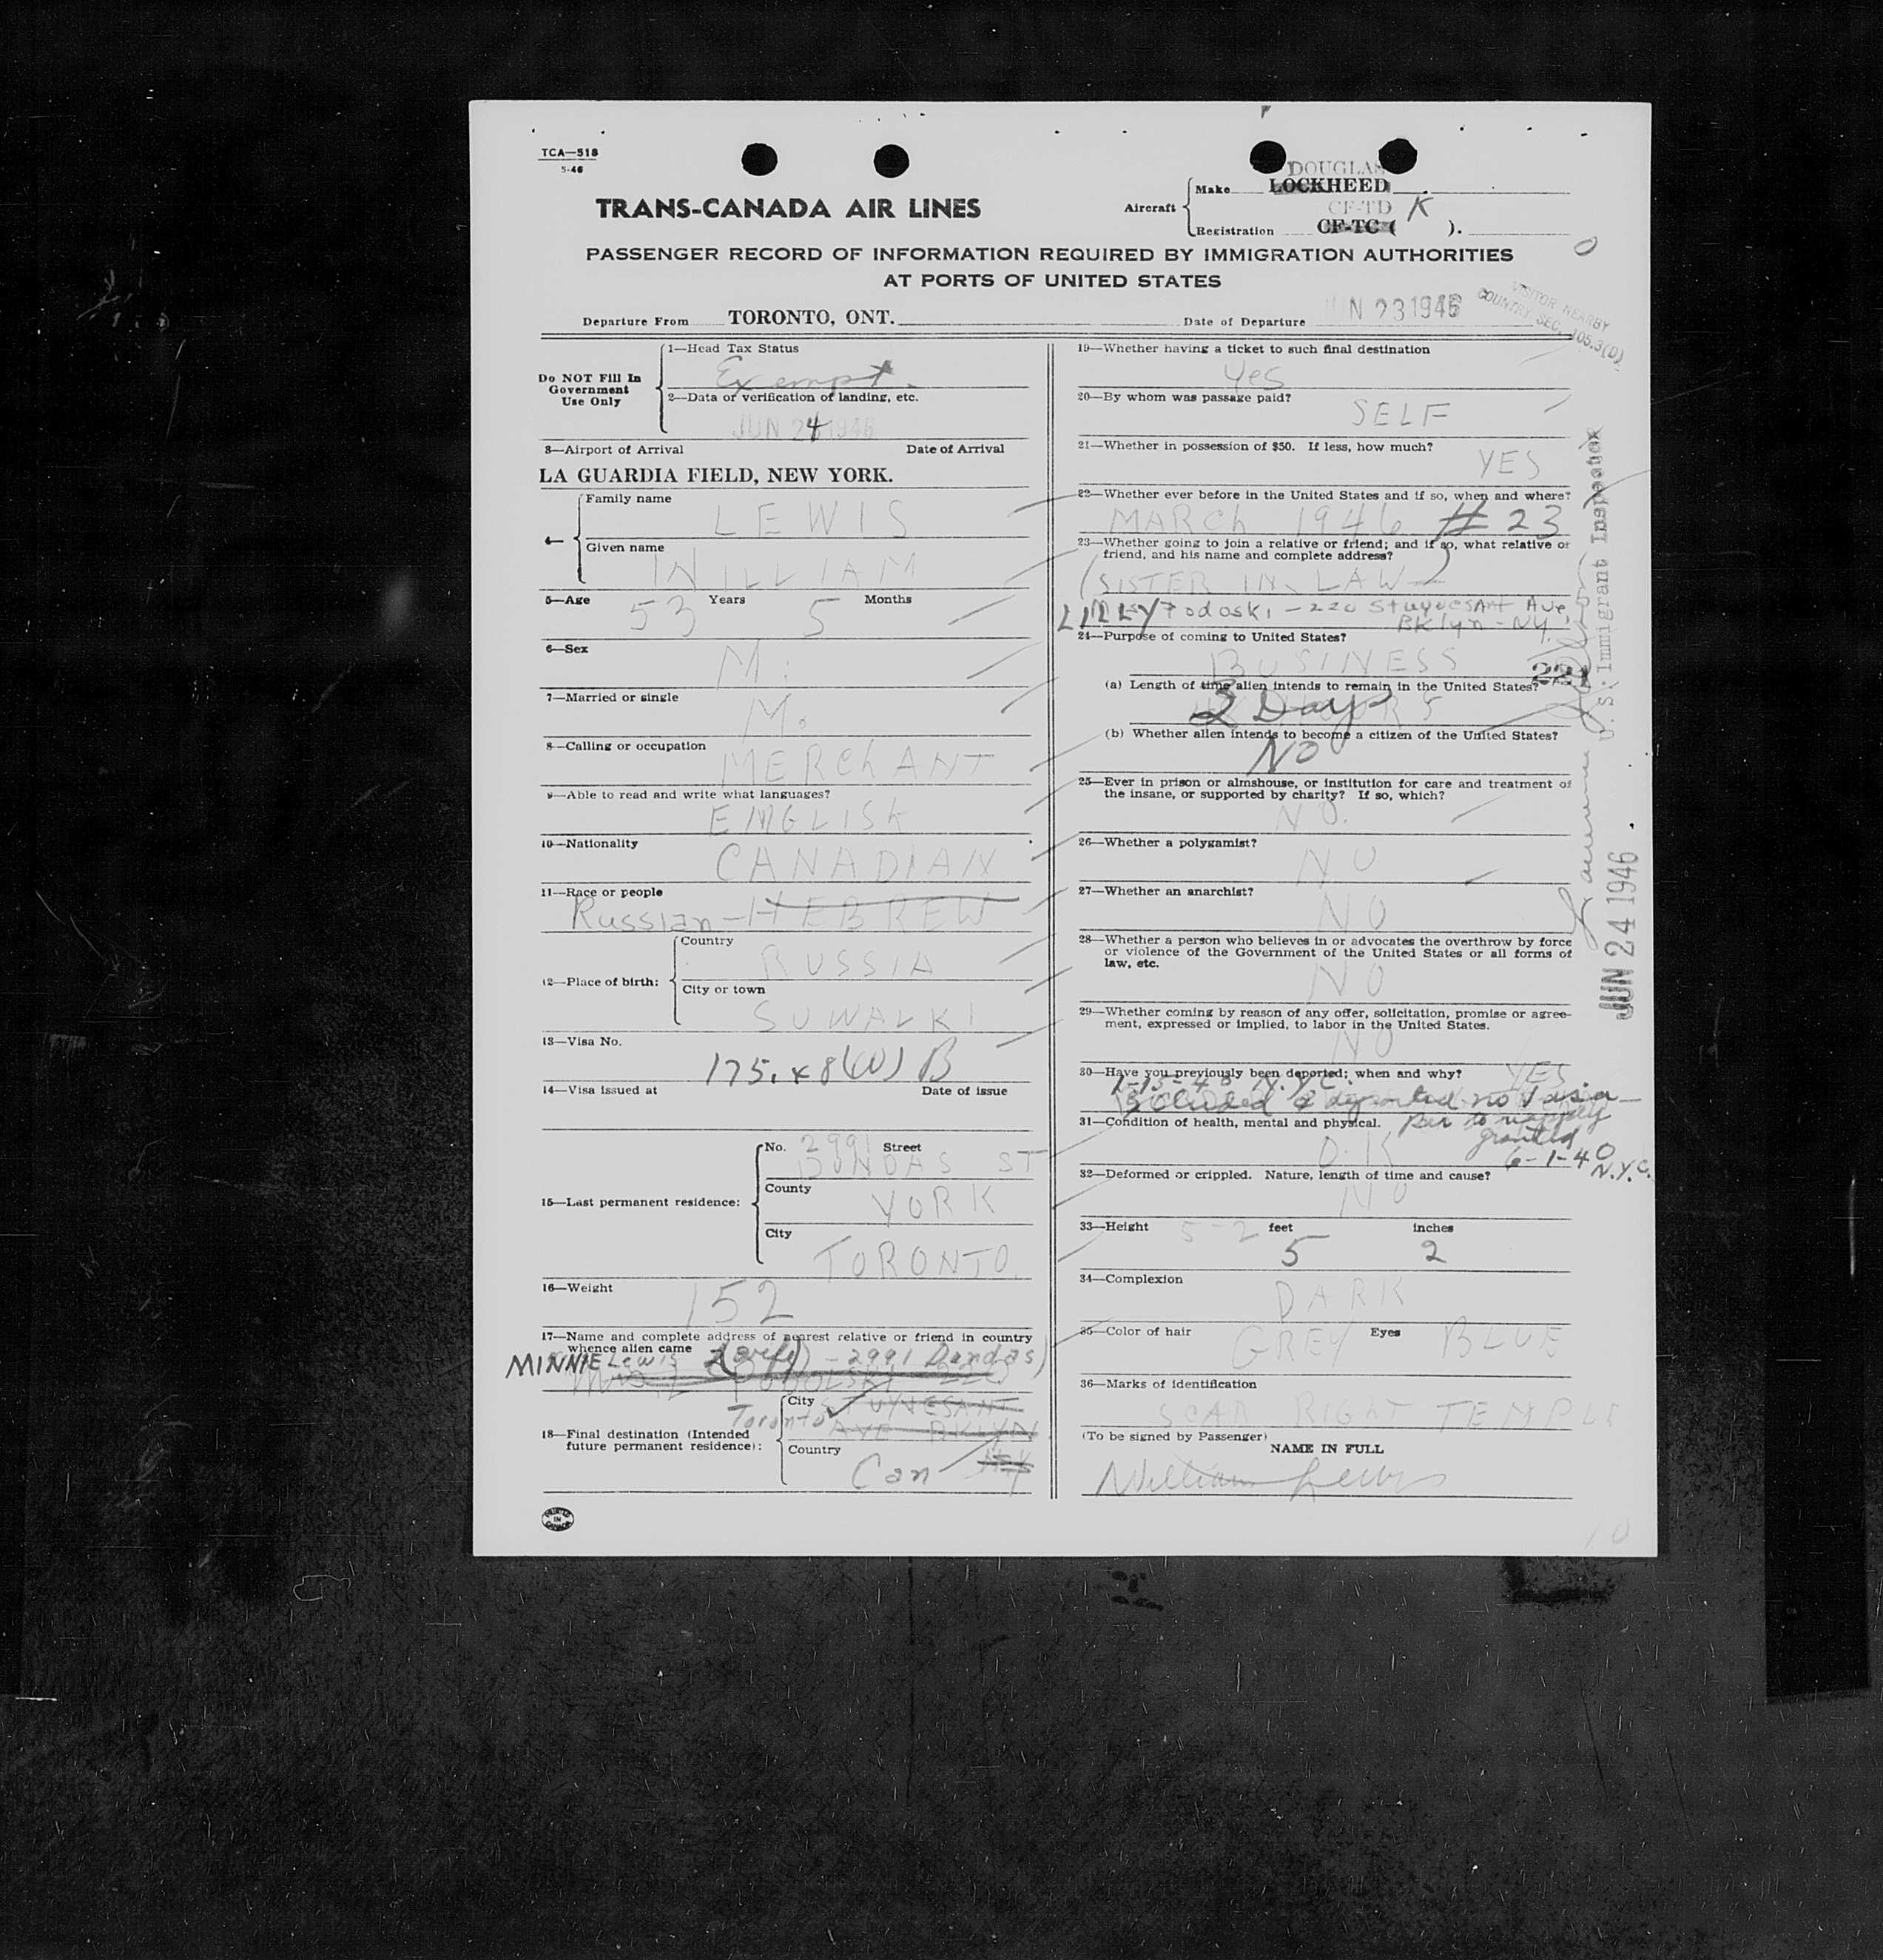 TCA—518
5-46
DOUGLAS
Make LOCKHEED
TRANS-CANADA AIR LINES
Aircraft
CF-TD K
Registration CF-TC ( ).
PASSENGER RECORD OF INFORMATION REQUIRED BY IMMIGRATION AUTHORITIES
AT PORTS OF UNITED STATES
VISITOR NEARBY
COUNTRY SEC. 105.3(D)
Departure From TORONTO, ONT. Date of Departure JUN 23 1946
Do NOT Fill In
Government
Use Only
1—Head Tax Status
Exempt.
2—Data or verification of landing, etc.
JUN 24 1946
3—Airport of Arrival Date of Arrival
LA GUARDIA FIELD, NEW YORK.
4—
Family name
LEWIS
Given name
WILLIAM
5—Age 53 Years 5 Months
6—Sex
M.
7—Married or single
M.
8—Calling or occupation
MERChANT
9—Able to read and write what languages?
ENGLISh
10—Nationality
CANADIAN
11—Race or people
Russian - HEBREW
12—Place of birth:
Country
RUSSIA
City or town
SUWALKI
13—Visa No.
175.48(N) B
14—Visa issued at Date of issue
15—Last permanent residence:
No. 2991 Street
DUNDAS ST
County
YORK
City
TORONTO
16—Weight
152
17—Name and complete address of nearest relative or friend in country
whence alien came
MINNIE Lewis (wife) - 2991 Dundas)
PODOLSKI 220
18—Final destination (Intended
future permanent residence):
City STUYVESANT
Toronto AVE BKLYN
Country
Can NY
PRINTED
IN
CANADA
19—Whether having a ticket to such final destination
Yes
20—By whom was passage paid?
SELF
21—Whether in possession of $50. If less, how much?
YES
22—Whether ever before in the United States and if so, when and where?
MARCh 1946 #23
23—Whether going to join a relative or friend; and if so, what relative or
friend, and his name and complete address?
(SISTER IN LAW)
LILLY Podoski - 220 Stuyvesant Ave
BKlyn - NY.
24—Purpose of coming to United States?
BUSINESS
(a) Length of time alien intends to remain in the United States?
3 Days
(b) Whether alien intends to become a citizen of the United States?
NO
25—Ever in prison or almshouse, or institution for care and treatment of
the insane, or supported by charity? If so, which?
NO.
26—Whether a polygamist?
NO
27—Whether an anarchist?
NO
28—Whether a person who believes in or advocates the overthrow by force
or violence of the Government of the United States or all forms of
law, etc.
NO
29—Whether coming by reason of any offer, solicitation, promise or agree-
ment, expressed or implied, to labor in the United States.
NO
30—Have you previously been deported; when and why? YES
1-15-40 N.Y.C.
Excluded & deported no visa
Per to reapply
granted
6-1-40
N.Y.C.
31—Condition of health, mental and physical.
O.K
32—Deformed or crippled. Nature, length of time and cause?
NO
33—Height 5-2 feet inches
5 2
34—Complexion
DARK
35—Color of hair GREY Eyes BLUE
36—Marks of identification
SCAR RIGHT TEMPLE
(To be signed by Passenger)
NAME IN FULL
William Lewis
U. S. Immigrant Inspector
JUN 24 1946
10